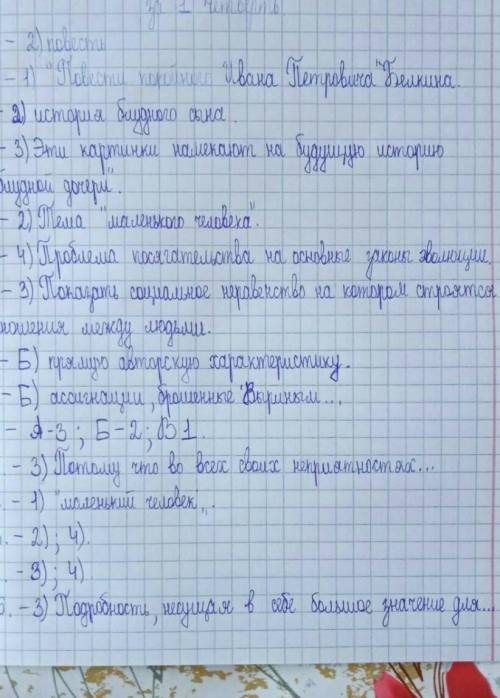 за 1 четверть
- 2) повесть
- 1) "Повести покойного Ивана Петровича Белкина.
- 2) история блудного сына.
- 3) Эти картинки намекают на будущую историю
блудной дочери".
- 2) Тема "маленького человека".
- 4) Проблема посягательства на основные законы эволюции.
- 3) Показать социальное неравенство на котором строятся
ношения между людьми.
- Б) прямую авторскую характеристику.
- Б) ассигнации, брошенные Выриным...
- А-3; Б-2; В1.
- 3) Потому что во всех своих неприятностях...
- 1) "маленький человек".
. - 2); 4).
. - 3); 4)
5. - 3) Подробность, несущая в себе большое значение для...